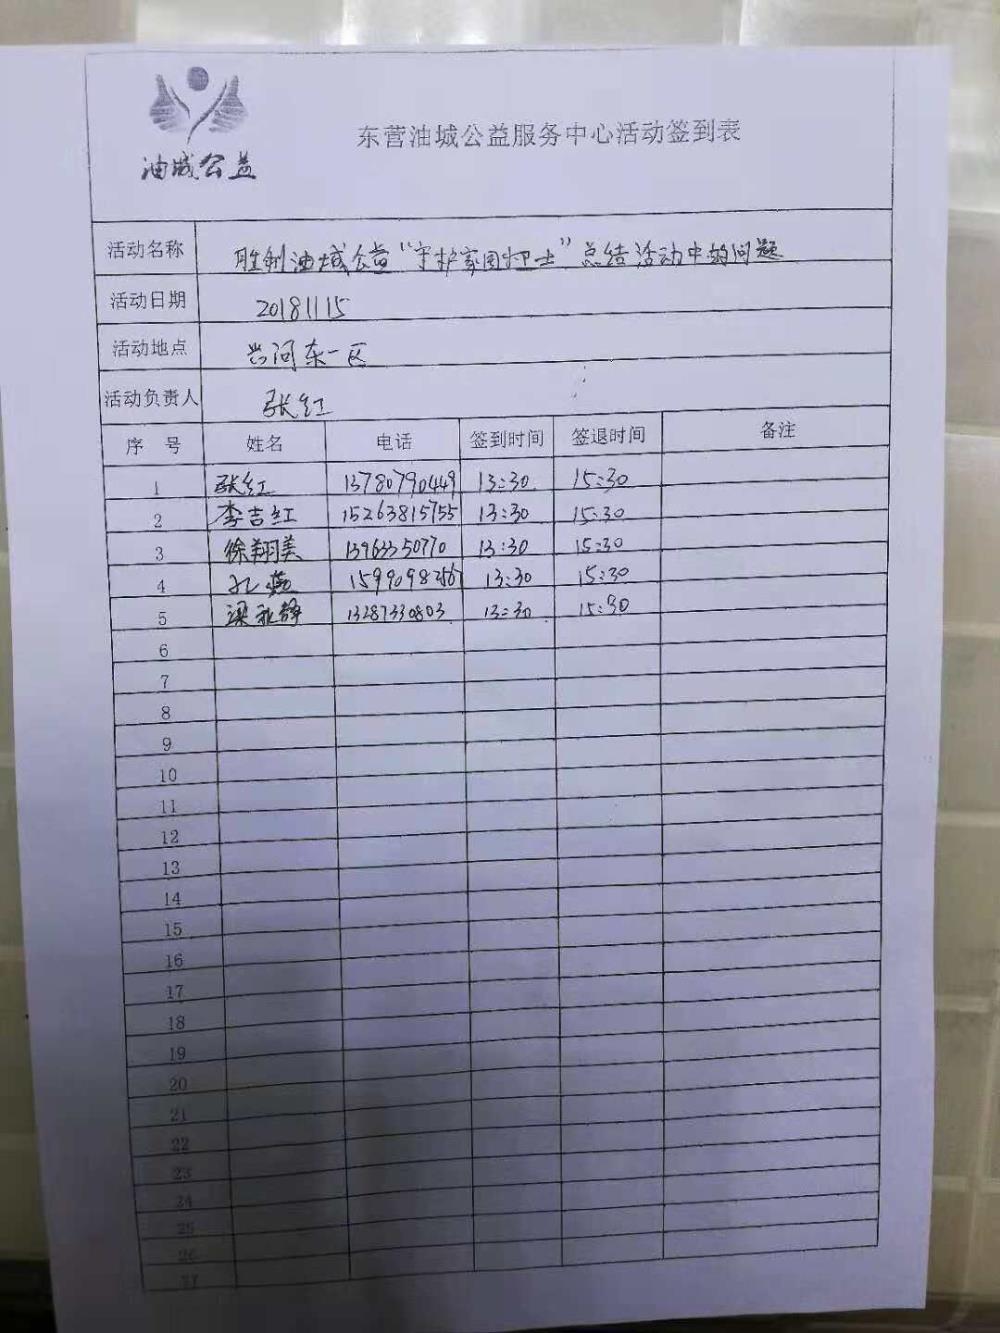 油城公益
东营油城公益服务中心活动签到表
活动名称 胜利油城公益“守护家园卫士”总结活动中的问题
活动日期 20181115
活动地点 兴河东一区
活动负责人 张红
序 号 姓名 电话 签到时间 签退时间 备注
1 张红 13780790449 13:30 15:30
2 李吉红 15263815755 13:30 15:30
3 徐翔美 13963350770 13:30 15:30
4 孔燕 1599098256 13:30 15:30
5 梁永静 13287330803 13:30 15:30
6
7
8
9
10
11
12
13
14
15
16
17
18
19
20
21
22
23
24
25
26
27